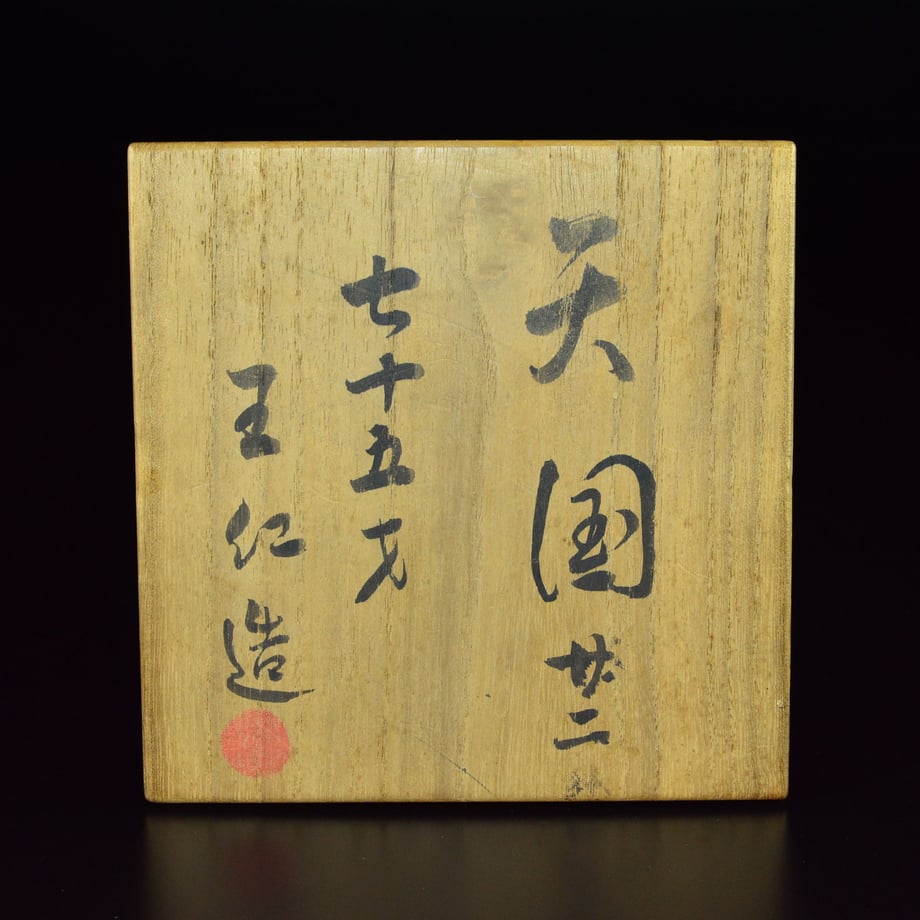 天国廿二
七十五才
王仁造